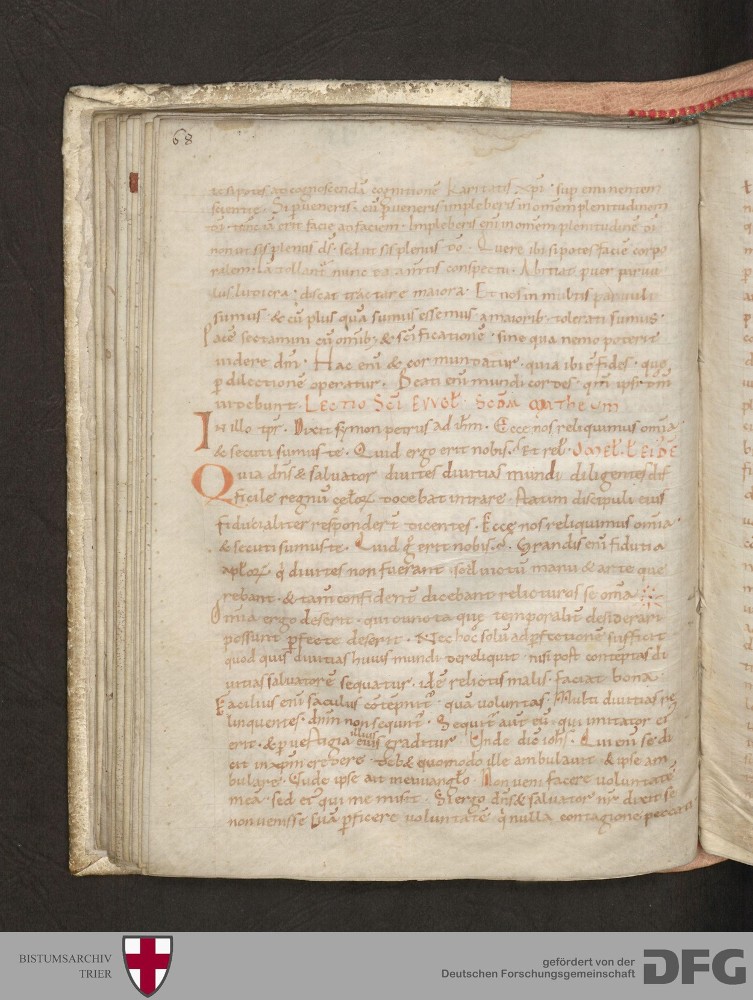 68
te si potes ad cognoscendā cognitionē karitatis xpi · sup eminentem
scientie · Si pveneris · cū pveneris impleberis in omēm plenitudinem
di · tunc erit facie ad faciem · Impleberis enī in omēm plenitudinē di
non ut sis plenus ds̄ · sed ut sis plenus dō · Quere ibi si potes faciē corpo
ralem · Iā tollant nunc a mtis conspectu · Abiciat puer parvu
lus ludicra · discat tractare maiora · Et nos in multis parvuli
sumus · & cū plus quā sumus essemus a maiorib · tolerati sumus ·
Pacē sectamini cū omīb · & scīficationē · sine qua nemo poterit
videre dm̄ · Hac enī & cor mundatur · quia ibi ē fides · que
p dilectionē operatur · Beati enī mundi cordes · qm̄ ipsi dm̄
videbunt · Lectio Scī Evvgł · Scdm̄ Matheum
In illo tpr · Dixit symon petrus ad ihm · Ecce nos reliquimus omīa
& secuti sumus te · Quid ergo erit nobis · Et rel
Quia dns & salvator divites divitias mundi diligentes dif
ficile regnū cęlorx docebat intrare · statim discipuli eius
fiducialiter responderū dicentes · Ecce nos reliquimus omīa ·
& secuti sumus te · Quid g erit nobis · Grandis enī fidutia
aplorx q divites non fuerant sed victū manu & arte que
rebant · & tam confidentr dicebant relicturos se omīa
Omīa ergo deserit · qui cuncta que temporalit desiderari
possunt pfecte deserit · Nec hoc solū ad pfectionē sufficit
quod quis divitias huius mundi dereliquit nisi post contēptas di
vitias salvatorē sequatur · idē relictis malis · faciat bona ·
Facilius enī saculus cōtēpnitr quā voluntas · Multi divitias re
linquentes · dnm non sequunt · Sequit aut eū · qui imitator ei
erit · & p vestigia eius graditur Unde dic iohs · Qui enī se di
illius
cit in xpm credere · deb& quomodo ille ambulavit & ipse am
bulare · Unde ipse ait in evvangło Non veni facere voluntatē
meā · sed ei qui me misit · Si ergo dns & salvator nr dixit se
non venisse suā pficere voluntatē · q nulla contagione peccati
BISTUMSARCHIV
TRIER
gefördert von der
Deutschen Forschungsgemeinschaft
DFG